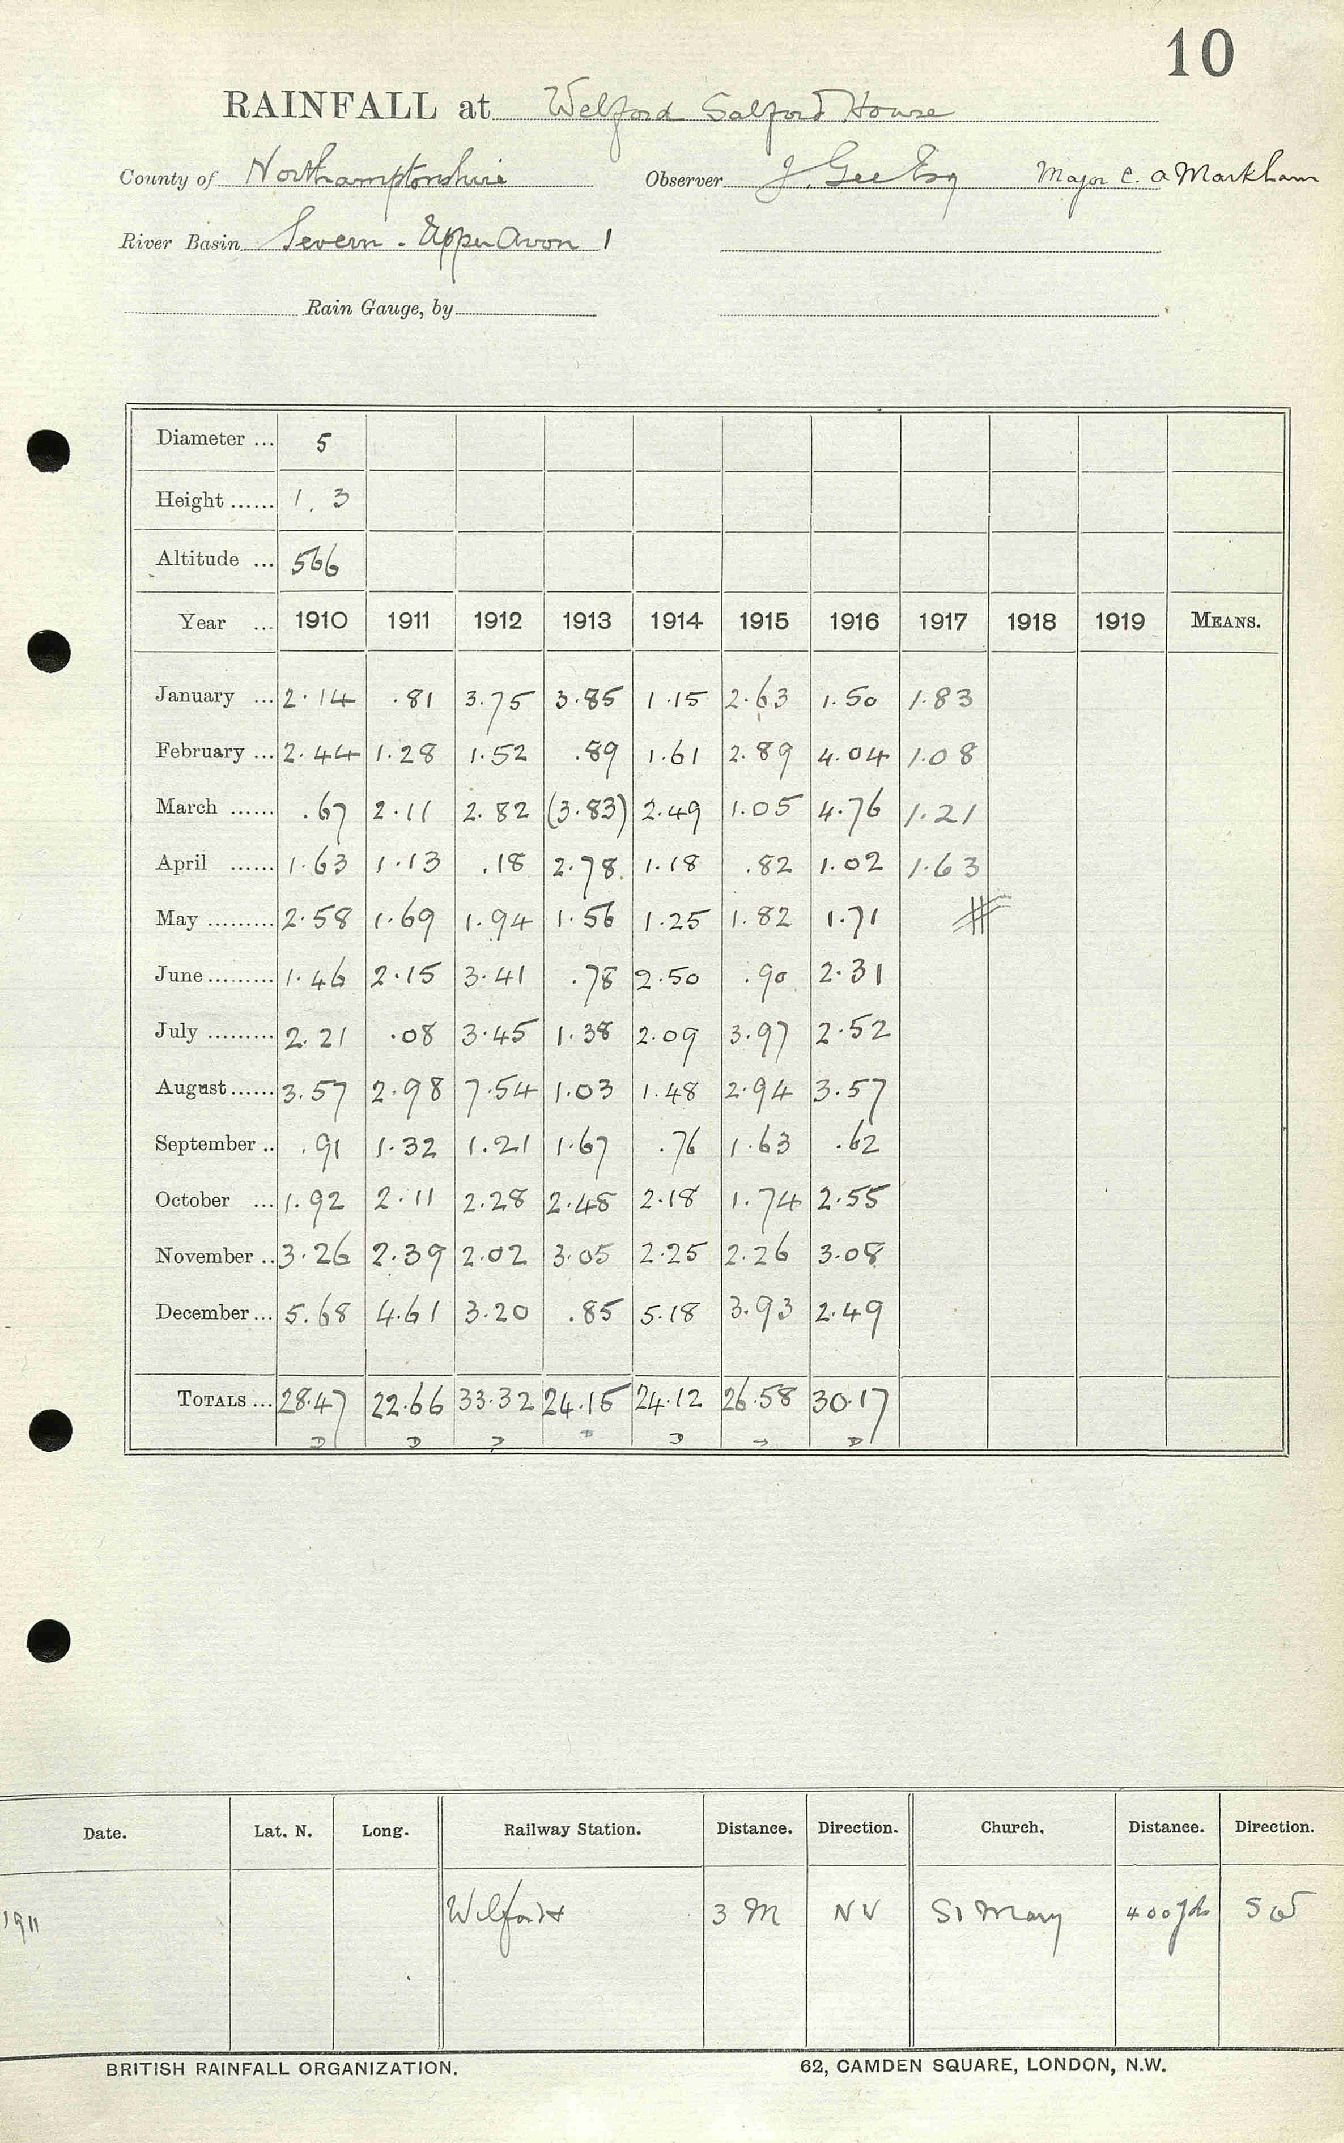 10
RAINFALL at Welford Salford House
County of Northamptonshire Observer J. Gee Esq Major C. A Markham
River Basin Severn - Upper Avon 1
Rain Gauge, by
Diameter ... 5
Height ...... 1. 3
Altitude ... 566
Year ... 1910 1911 1912 1913 1914 1915 1916 1917 1918 1919 MEANS.
January ... 2.14 .81 3.75 3.85 1.15 2.63 1.50 1.83
February ... 2.44 1.28 1.52 .89 1.61 2.89 4.04 1.08
March ...... .67 2.11 2.82 (3.83) 2.49 1.05 4.76 1.21
April ...... 1.63 1.13 .18 2.78 1.18 .82 1.02 1.63
May ......... 2.58 1.69 1.94 1.56 1.25 1.82 1.71 #
June ......... 1.46 2.15 3.41 .78 2.50 .90 2.31
July ......... 2.21 .08 3.45 1.38 2.09 3.97 2.52
August ...... 3.57 2.98 7.54 1.03 1.48 2.94 3.57
September .. .91 1.32 1.21 1.67 .76 1.63 .62
October ... 1.92 2.11 2.28 2.48 2.18 1.74 2.55
November .. 3.26 2.39 2.02 3.05 2.25 2.26 3.08
December ... 5.68 4.61 3.20 .85 5.18 3.93 2.49
TOTALS ... 28.47 22.66 33.32 24.15 24.12 26.58 30.17
Date. Lat. N. Long. Railway Station. Distance. Direction. Church. Distance. Direction.
1911 Welford 3 M St Mary 400 yds SW
BRITISH RAINFALL ORGANIZATION. 62, CAMDEN SQUARE, LONDON, N.W.